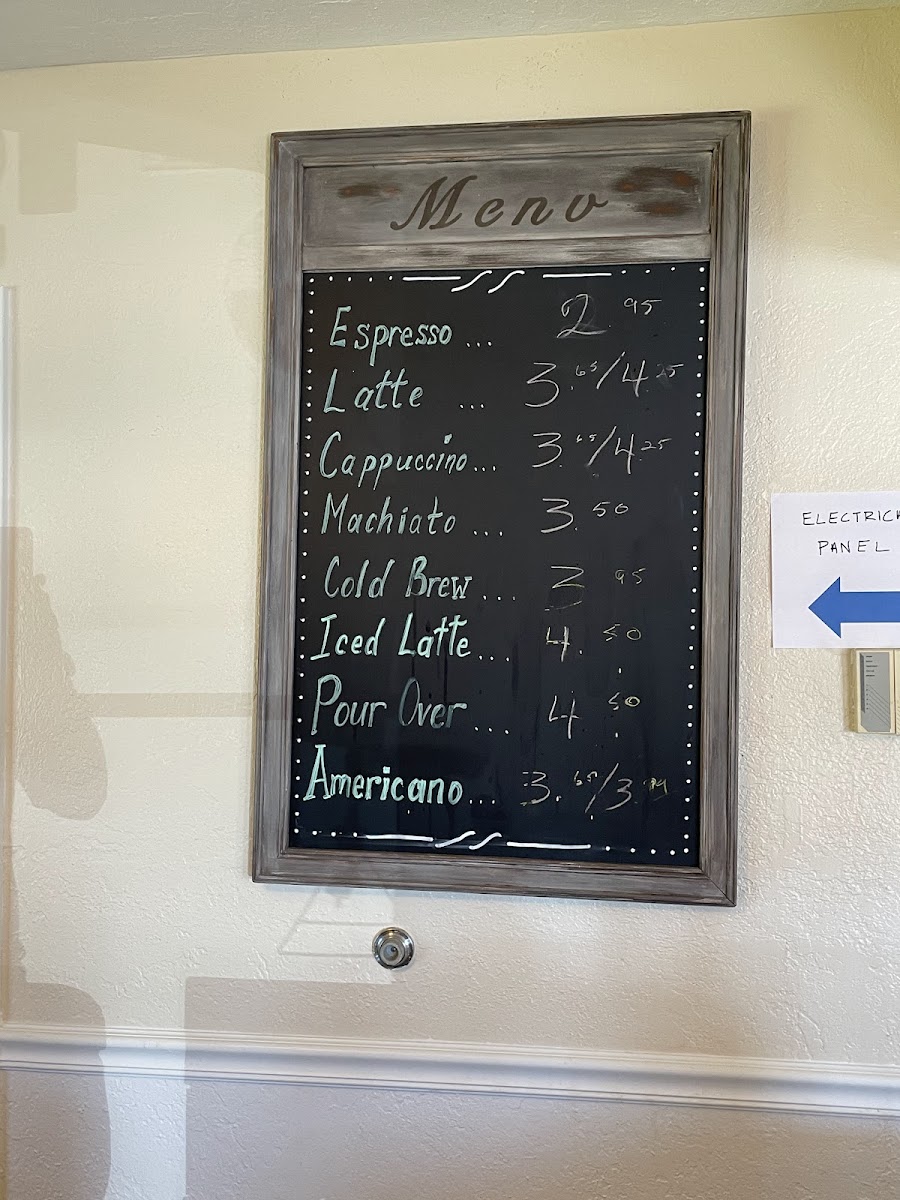 Menu
Espresso ... 2.95
Latte ... 3.65/4.25
Cappuccino... 3.65/4.25
Machiato ... 3.50
Cold Brew ... 3.95
Iced Latte... 4.50
Pour Over ... 4.50
Americano... 3.65/3.99
ELECTRICA
PANEL